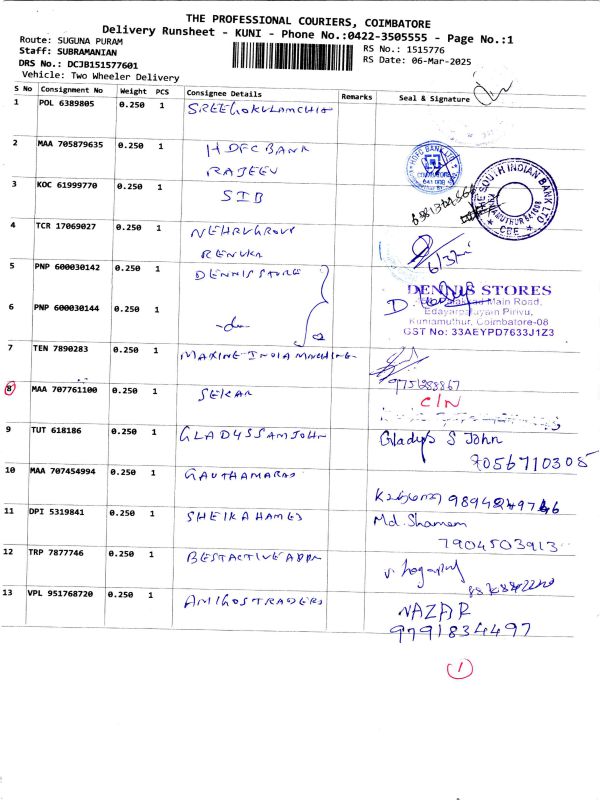 THE PROFESSIONAL COURIERS, COIMBATORE
Delivery Runsheet - KUNI - Phone No.:0422-3505555 - Page No.:1
Route: SUGUNA PURAM
RS No.: 1515776
Staff: SUBRAMANIAN
RS Date: 06-Mar-2025
DRS No.: DCJB151577601
Vehicle: Two Wheeler Delivery
S No Consignment No Weight PCS Consignee Details Remarks Seal & Signature
1 POL 6389805 0.250 1 SREEGOKULAMCHIT
2 MAA 705879635 0.250 1 HDFC BANK
RAJEEV
HDFC BANK LTD
641 008
3 KOC 61999770 0.250 1 SIB
SOUTH INDIAN BANK LTD
CBE
4 TCR 17069027 0.250 1 NEHRUGROUP
RENUKA
6/3/
5 PNP 600030142 0.250 1 DENNIS STORE
DENNIS STORES
Main Road,
Edayarpalayam Pirivu,
Kuniamuthur, Coimbatore-08
GST No: 33AEYPD7633J1Z3
6 PNP 600030144 0.250 1 -do-
7 TEN 7890283 0.250 1 MAXINE INDIA
9751288867
8 MAA 707761100 0.250 1 SEKAR
C/N
9 TUT 618186 0.250 1 GLADYSSAMJOHN
Gladys S John
7056710305
10 MAA 707454994 0.250 1 GAUTHAMARAJ
11 DPI 5319841 0.250 1 SHEIKAHAMED
Md. Shameem
7904503913
12 TRP 7877746 0.250 1 BESTACTIVE
13 VPL 951768720 0.250 1 AMIGOSTRADERS
NAZAR
9791834497
1